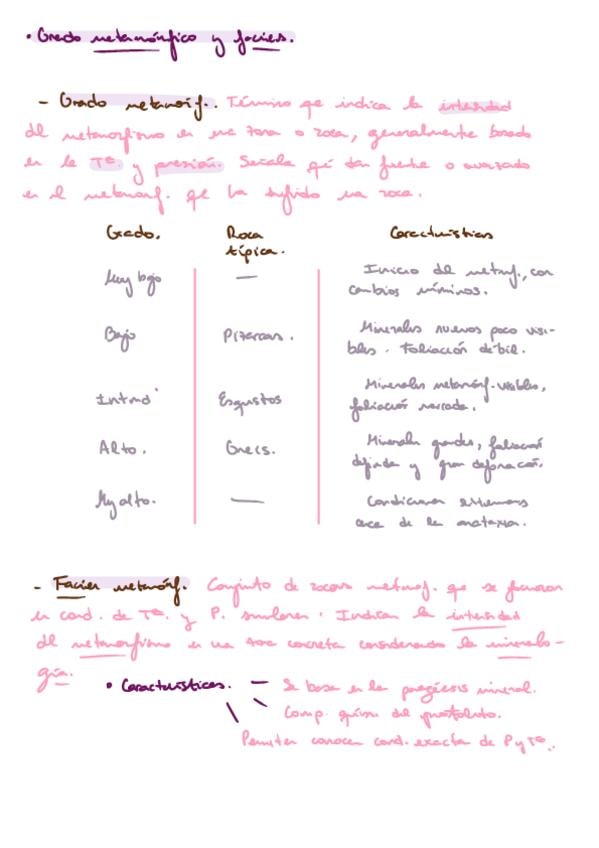 • Grado metamórfico y facies.
- Grado metamórf.. Término qe indica la intensidad
del metamorfismo en una zona o roca, generalmente basado
en la Tª. y presión. Señala qué tan fuerte o avanzado
es el metamorf. qe ha sufrido una roca.
Grado. Roca típica. Características
Muy bajo — Inicio del metamf., con
cambios mínimos.
Bajo Pizarras. Minerales nuevos poco visi-
bles. Foliación débil.
Intmd Esquistos Minerales metamórf. visibles,
foliación marcada.
Alto. Gneis. Minerales grandes, foliación
definida y gran deformación.
My alto. — Condiciones extremas
cerca de la anatexia.
- Facies metamórf. Conjunto de rocas metamf. que se formaron
en cond. de Tª. y P. similares. Indican la intensidad
del metamorfismo en una zona concreta considerando la mineralo-
gía.
• Características. — Se basa en la paragénesis mineral.
Comp. quím. del protolito.
Permiten conocer cond. exacta de P y Tª.